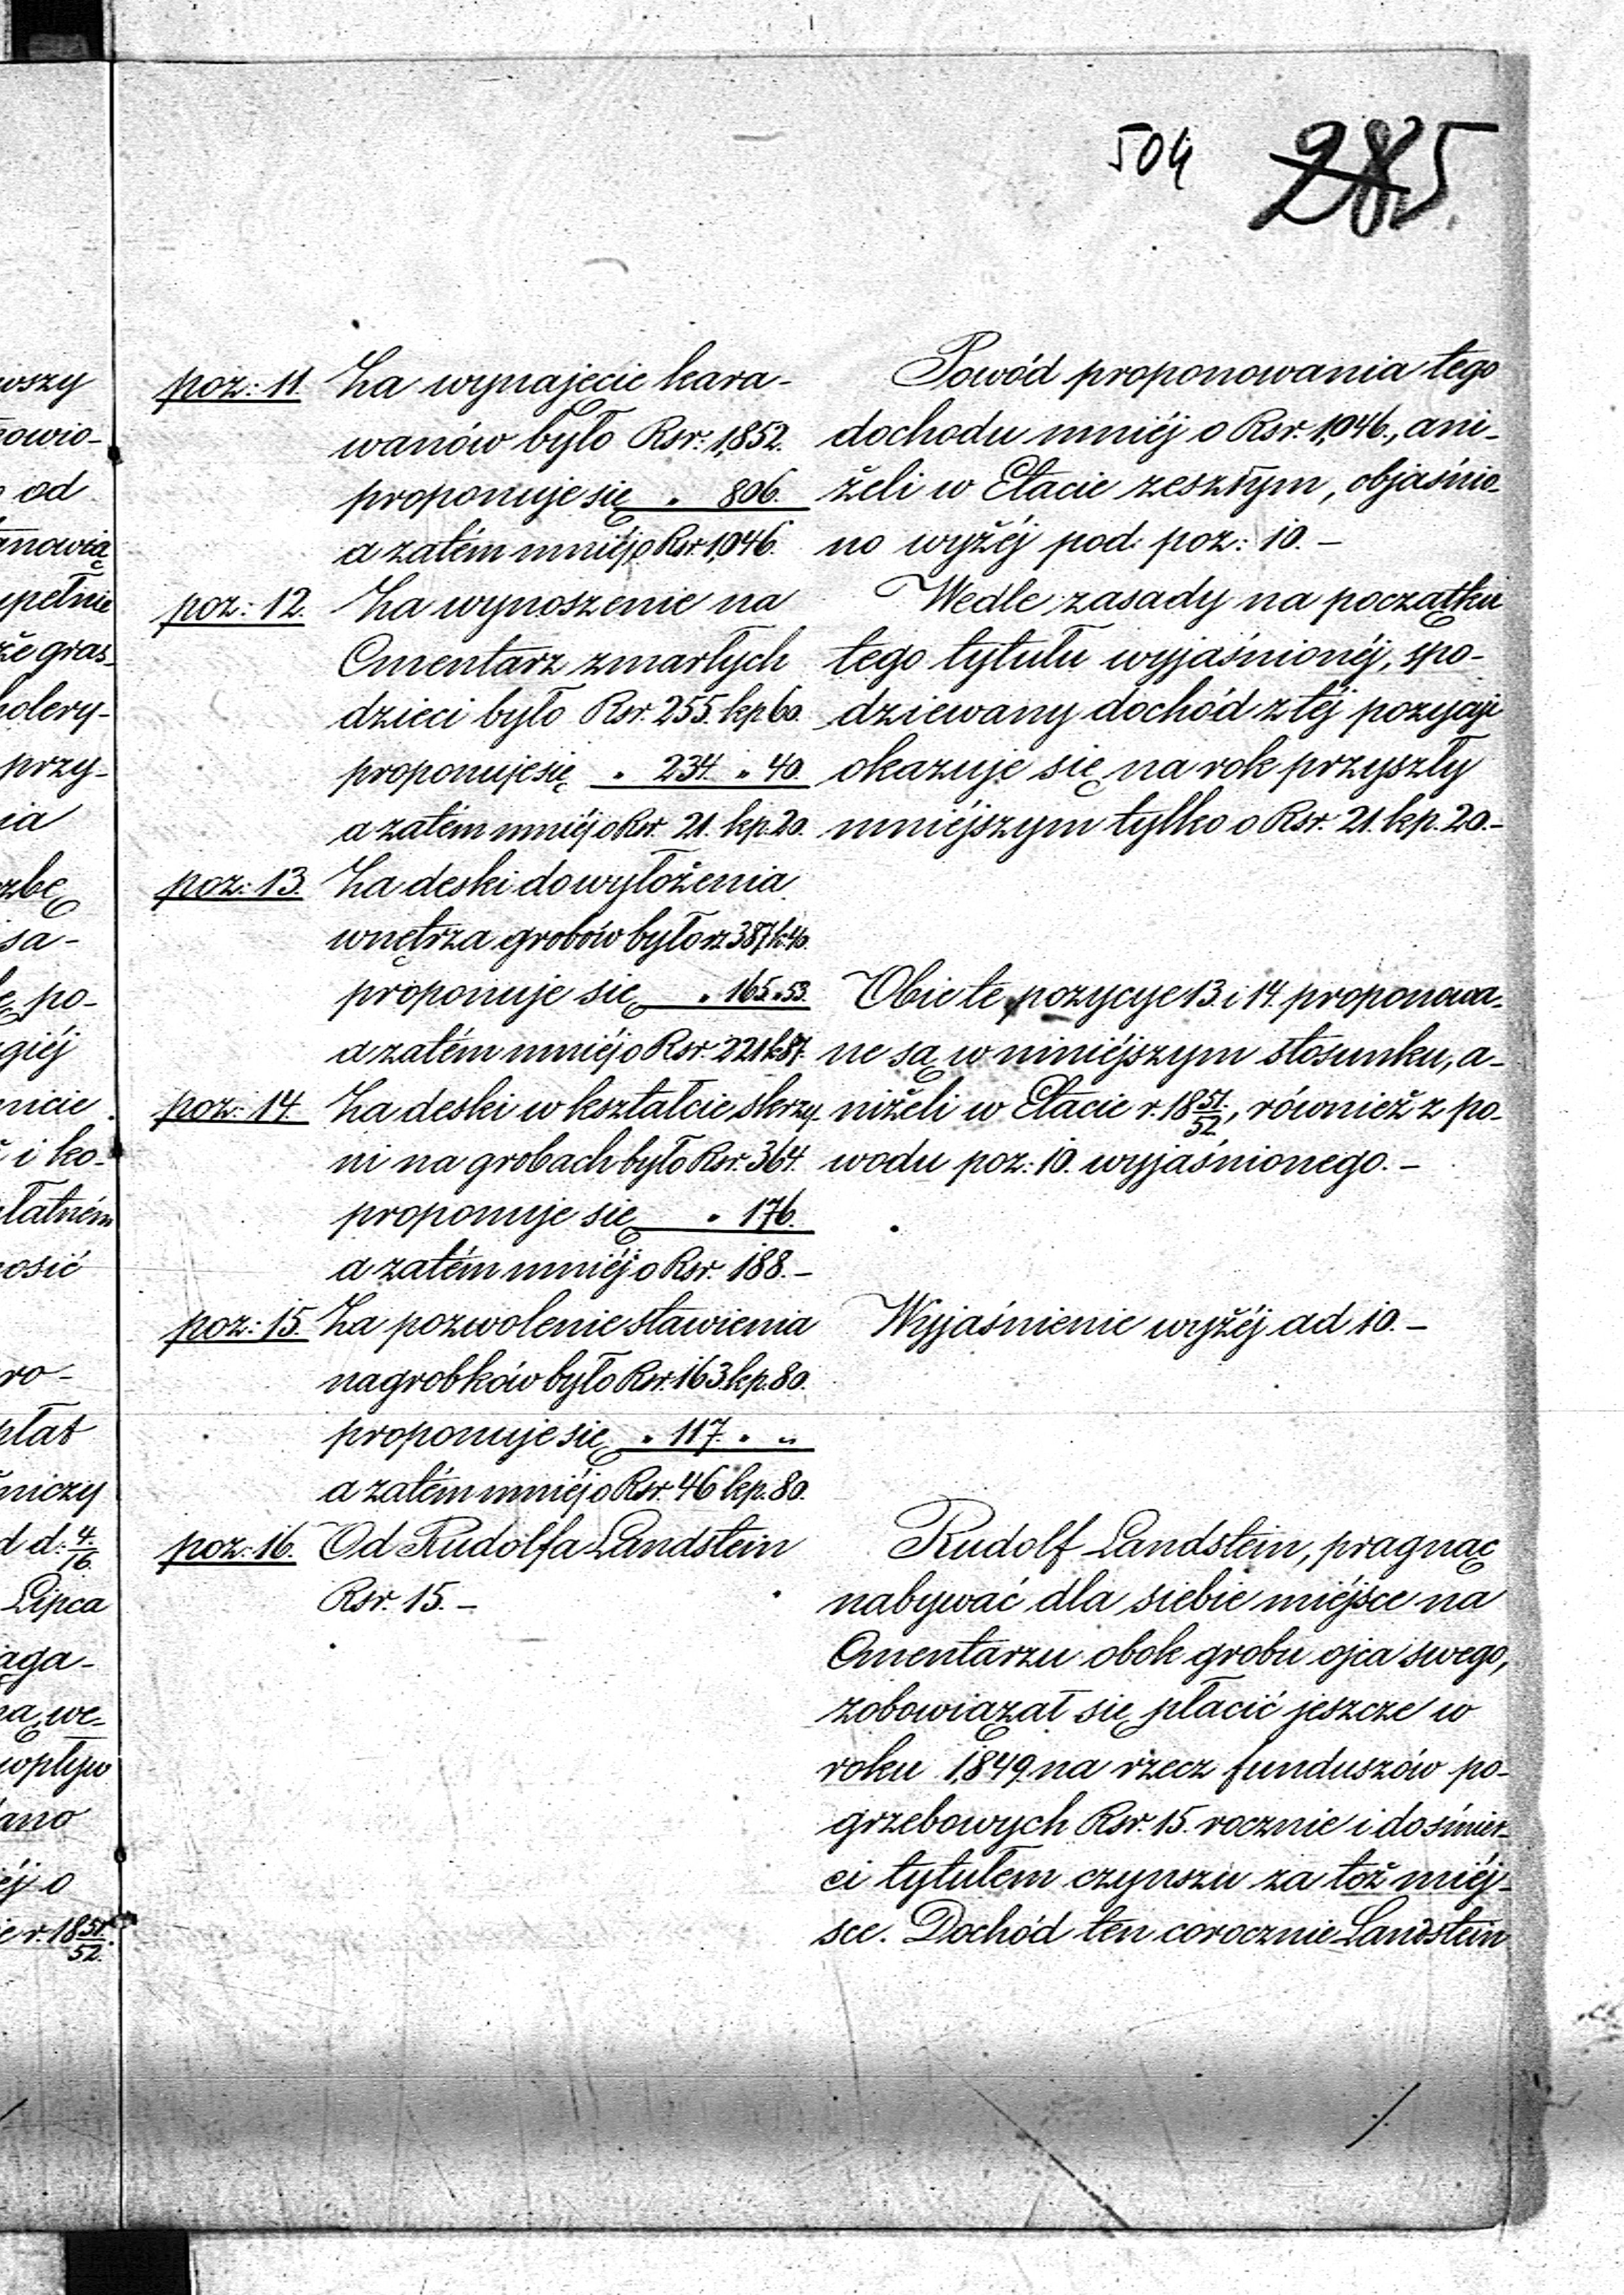 504 285.
poz: 11. Za wynajęcie kara-
wanów było Rsr: 1,852.
proponuje się " 806.
a zatém mniéj o Rsr 1,046.
Powód proponowania tego
dochodu mniéj o Rsr. 1,046., ani-
żeli w Etacie zeszłym, objaśnio-
no wyżéj pod poz: 10. –
poz: 12. Za wynoszenie na
Cmentarz zmarłych
dzieci było Rsr. 255. kp 60.
proponuje się " 234. " 40.
a zatém mniéj o Rsr. 21. kp. 20.
Wedle zasady na początku
tego tytułu wyjaśnionéj, spo-
dziewany dochód z téj pozycyi
okazuje się na rok przyszły
mniéjszym tylko o Rsr. 21. kp. 20. –
poz: 13. Za deski do wyłożenia
wnętrza grobów było rs 387 k. 40.
proponuje się " 165 " 53.
a zatém mniéj o Rsr. 221 k 87.
poz: 14. Za deski w kształcie skrzy-
ni na grobach było Rsr. 364.
proponuje się " 176.
a zatém mniéj o Rsr. 188. –
Obie te pozycye 13. i 14. proponowa-
ne są w niniéjszym stosunku, a-
niżeli w Etacie r. 18 51/52, również z po-
wodu poz: 10. wyjaśnionego. –
poz: 15. Za pozwolenie stawienia
nagrobków było Rsr. 163. kp. 80.
proponuje się " 117. " "
a zatém mniéj o Rsr. 46 kp. 80.
Wyjaśnienie wyżéj ad 10. –
poz: 16. Od Rudolfa Landstein
Rsr. 15. –
Rudolf Landstein, pragnąc
nabywać dla siebie miéjsce na
Cmentarzu obok grobu ojca swego,
zobowiązał się płacić jeszcze w
roku 1,849 na rzecz funduszów po-
grzebowych Rsr. 15. rocznie i do śmier-
ci tytułem czynszu za toż miéj-
sce. Dochód ten corocznie Landstein